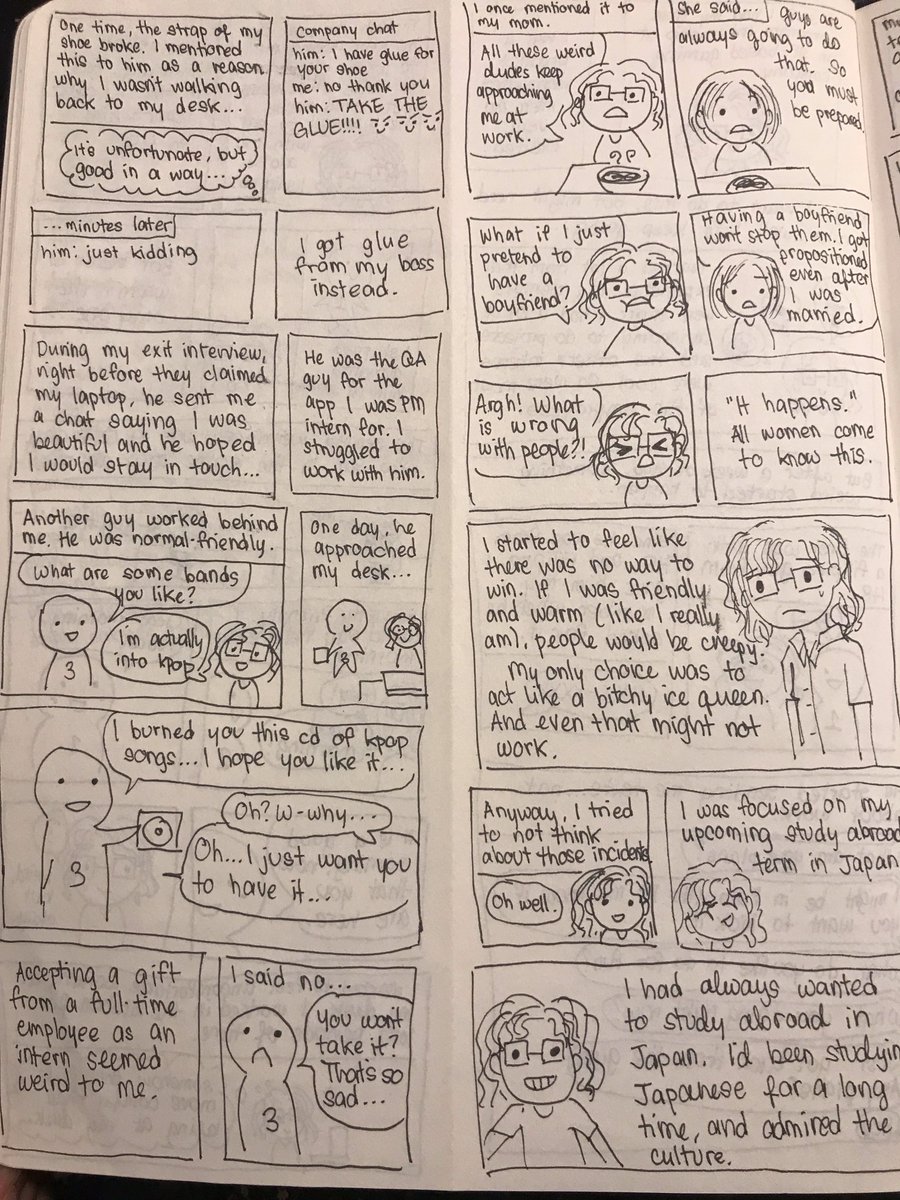 One time, the strap of my
shoe broke. I mentioned
this to him as a reason
why I wasn't walking
back to my desk...
It's unfortunate, but
good in a way...
company chat
him: I have glue for
your shoe
me: no thank you
him: TAKE THE
GLUE!!!!
...minutes later
him: just kidding
I got glue
from my boss
instead.
During my exit interview,
right before they claimed
my laptop, he sent me
a chat saying I was
beautiful and he hoped
I would stay in touch...
He was the QA
guy for the
app I was PM
intern for. I
struggled to
work with him.
Another guy worked behind
me. He was normal-friendly.
What are some bands
you like?
I'm actually
into kpop
3
One day, he
approached
my desk...
3
I burned you this cd of kpop
songs... I hope you like it...
Oh? W-why...
Oh... I just want you
to have it...
3
Accepting a gift
from a full-time
employee as an
intern seemed
weird to me.
I said no...
You won't
take it?
That's so
sad...
3
I once mentioned it to
my mom.
All these weird
dudes keep
approaching
me at
work.
She said...
guys are
always going to do
that. So
you must
be prepared.
What if I just
pretend to
have a
boyfriend?
Having a boyfriend
won't stop them. I got
propositioned
even after
I was
married.
Argh! What
is wrong
with people?!
"It happens."
All women come
to know this.
I started to feel like
there was no way to
win. If I was friendly
and warm (like I really
am), people would be creepy.
My only choice was to
act like a bitchy ice queen.
And even that might not
work.
Anyway, I tried
to not think
about those incidents
Oh well.
I was focused on my
upcoming study abroad
term in Japan
I had always wanted
to study abroad in
Japan. I'd been studyin
Japanese for a long
time, and admired the
culture.